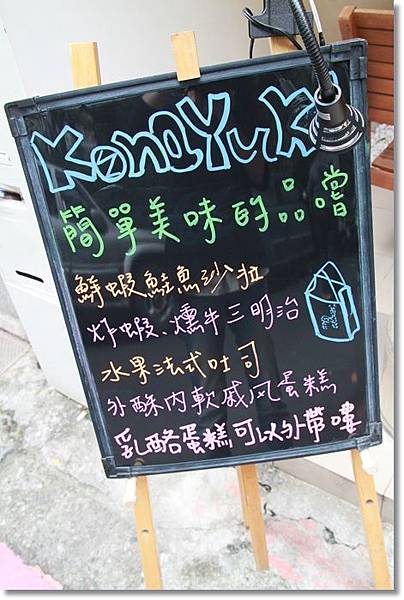 KongYuki
簡單美味的品嚐
鮮蝦鮭魚沙拉
炸蝦、燻牛三明治
水果法式吐司
外酥內軟戚风蛋糕
乳酪蛋糕可以外帶嘍